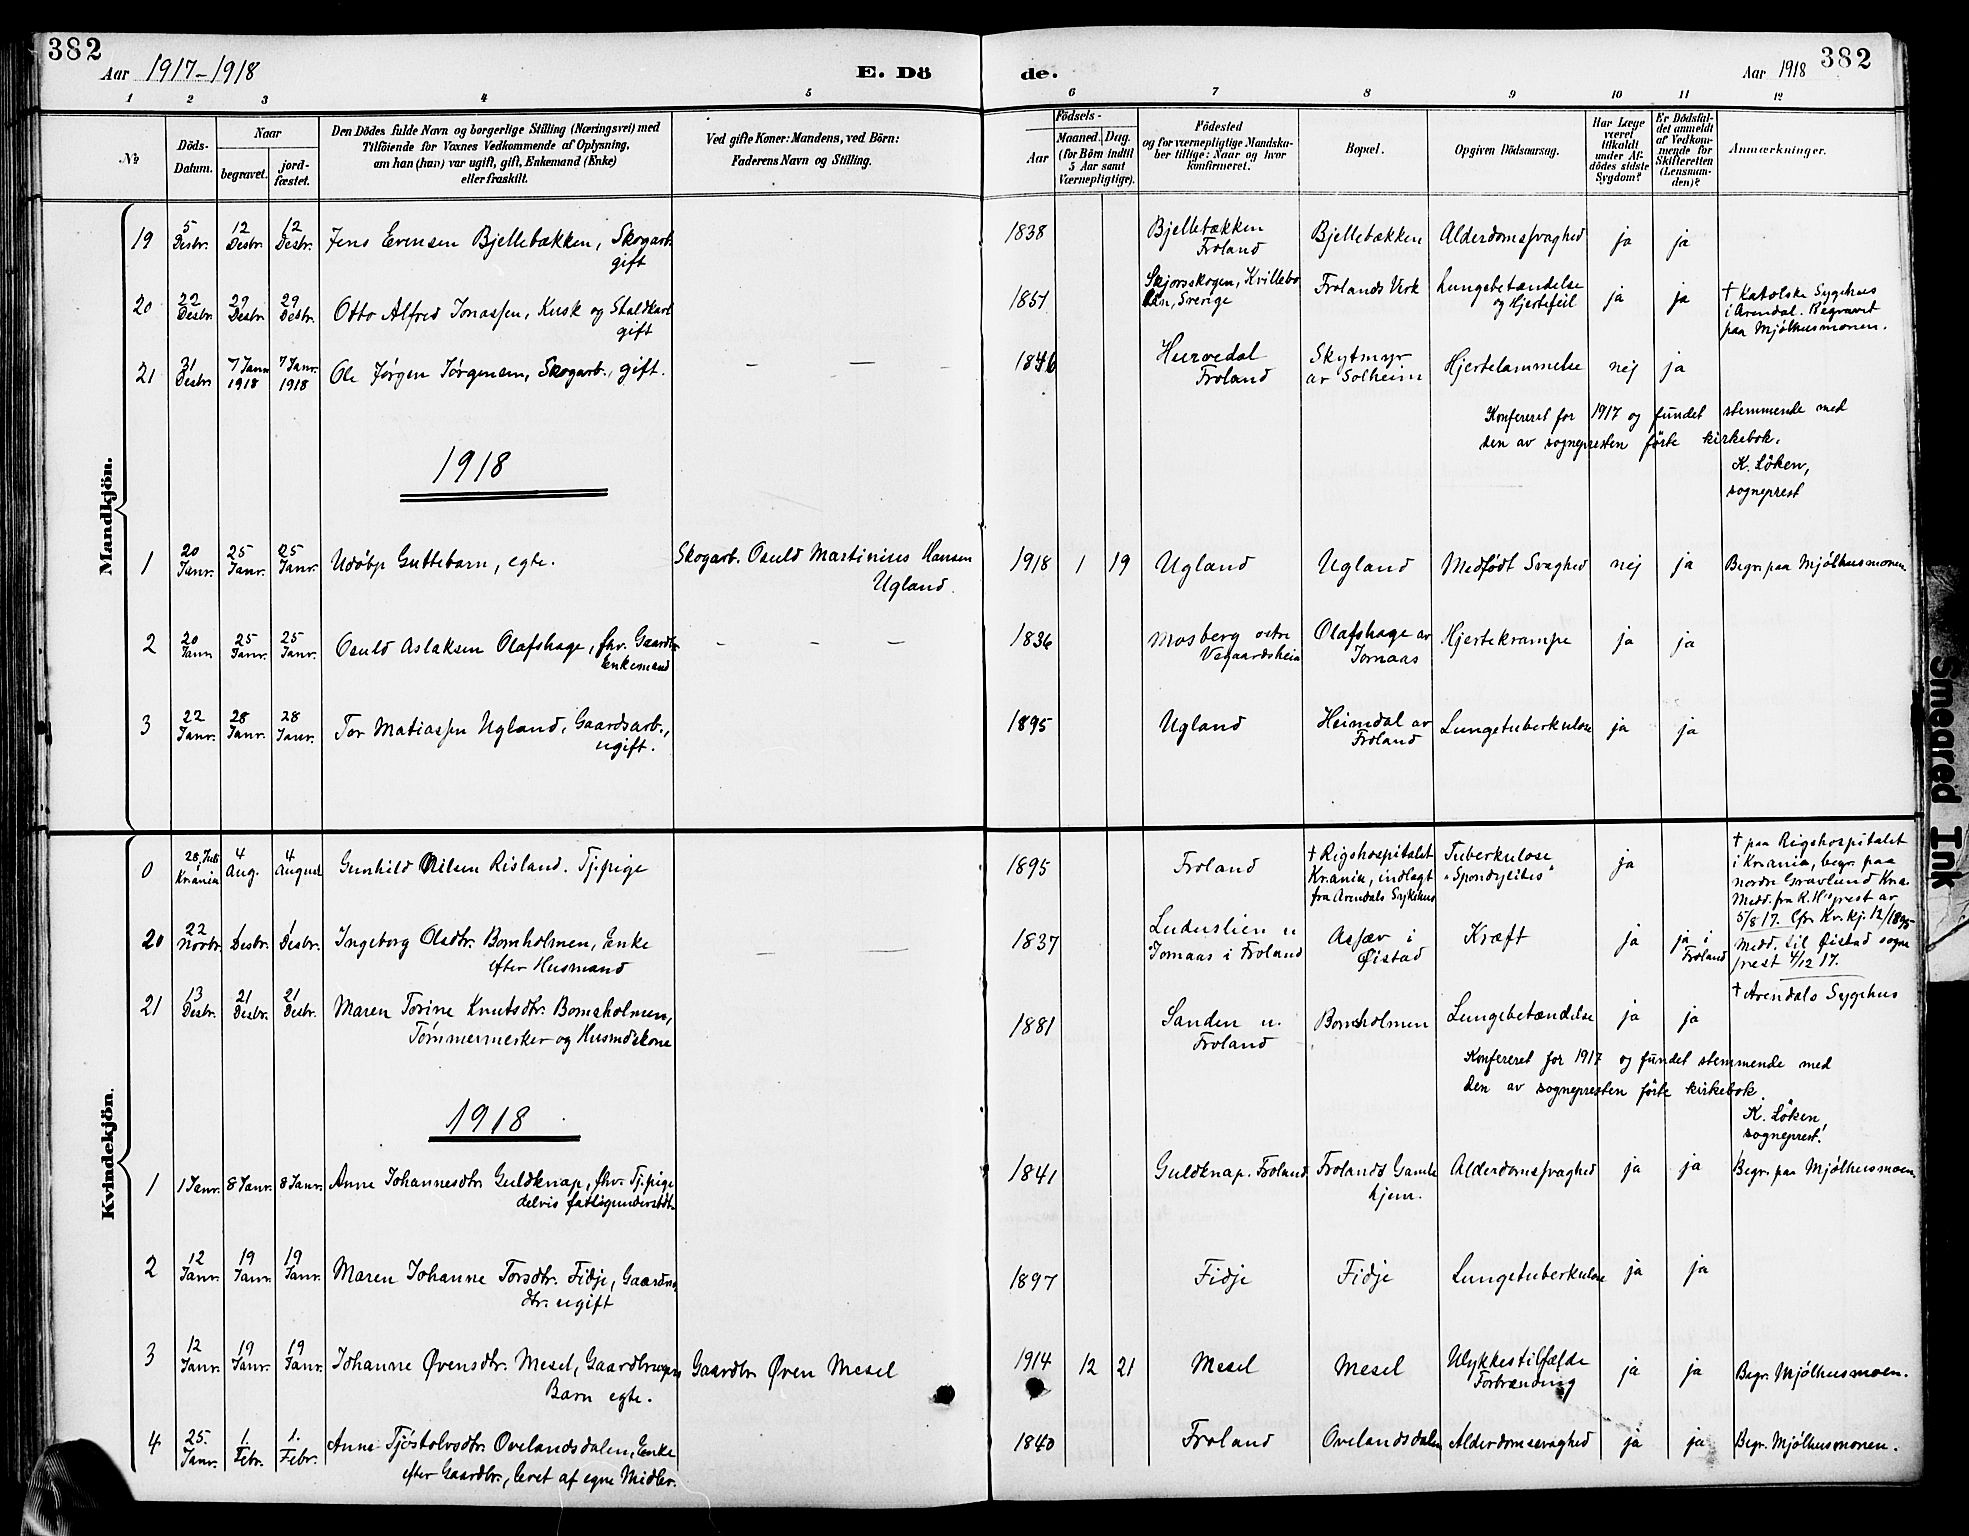 382
Aar 1917-1918
E. Dö
de.
Aar 1918
382
1 2 3 4 5 6 7 8 9 10 11 12
No
Döds-
Datum.
Naar
begravet.
jord-
fæstet.
Den Dödes fulde Navn og borgerlige Stilling (Næringsvei) med
Tilföiende for Voxnes Vedkommende af Oplysning,
om han (hun) var ugift, gift, Enkemand (Enke)
eller fraskilt.
Ved gifte Koner: Mandens, ved Börn:
Faderens Navn og Stilling.
Födsels-
Aar
Maaned. Dag.
(for Börn indtil
5 Aar samt
Værnepligtige).
Födested
og for værnepligtige Mandska-
ber tillige: Naar og hvor
konfirmeret.
Bopæl.
Opgiven Dödsaarsag.
Har Læge
været
tilkaldt
under Af-
dödes sidste
Sygdom?
Er Dödsfal-
det anmeldt
af Vedkom-
mende for
Skifteretten
(Lensman-
den)?
Anmærkninger.
Mandkjön.
19 5 Desbr. 12 Desbr. 12 Desbr. Jens Evensen Bjellebækken, Skogarb.
gift
1838 Bjellebækken
Froland
Bjellebækken Alderdomssvaghed ja ja
20 22 Desbr. 29 Desbr. 29 Desbr. Otto Alfred Jonassen, Kusk og Staldkarl
gift
1851 Skjorsskogen, Kvillebo
Sverige
Frolands Verk Lungebetændelse
og Hjertefeil
ja ja † Katolske Sygehus
i Arendal. Begravet
paa Mjølhusmonen.
21 31 Desbr 7 Janr. 1918 7 Janr. 1918 Ole Jørgen Jørgensen, Skogarb., gift. — — —
1846 Hurvedal
Froland
Skytmyr
av Solheim
Hjertelammelse nej ja
Konfereret for 1917 og fundet stemmende med
den av sognepresten förte kirkebok.
K. Löken,
sogneprest
1918
1 20 Janr. 25 Janr. 25 Janr. Udöbt Guttebarn, egte. Skogarb. Osuld Martinius Hansen
Ugland.
1918 1 19 Ugland Ugland Medfödt Svaghed nej ja Begr. paa Mjölhusmonen
2 20 Janr 25 Janr. 25 Janr. Osuld Aslaksen Olafshage, fhv. Gaardbr.
Enkemand
— — —
1836 Mosberg östre
Vegaardsheia
Olafshage av
Jomaas
Hjertekrampe ja ja
3 22 Janr. 28 Janr. 28 Janr. Tor Matiassen Ugland, Gaardsarb.,
ugift.
1895 Ugland Heimdal av
Froland
Lungetuberkulose ja ja
Kvindekjön.
0 28 Juli Krania 4 Aug. 4 August Gunhild Nilsen Risland. Tj.pige
1895 Froland † Rigshospitalet
Krania, indlagt
fra Arendals Sykehus
Tuberkulose
"Spondylites"
ja † paa Rigshospitalet
i Krania, begr. paa
nordre Gravlund Kra.
Medd. fra R.H's prest av
5/8 17. Cfr. Kv.kj. 12/1895
20 22 Novbr. 1 Desbr. 1 Desbr. Ingeborg Olsdtr. Bornholmen, Enke
efter Husmand
—
1837 Luduslien u
Jomaas i Froland
Asfæv i
Øistad
Kræft ja ja i
Froland
Medd. til Øistad sogne
prest 4/12 17.
21 13 Desbr. 21 Desbr. 21 Desbr. Maren Torine Knutsdtr. Bornsholmen,
Tömmermerker og Husmdskone
1881 Sanden u.
Froland
Bornholmen Lungebetændelse ja ja † Arendals Sygehus
Konfereret for 1917 og fundet stemmende med
den av sognepresten förte kirkebok.
K. Löken,
sogneprest.
1918
1 1 Janr. 8 Janr. 8 Janr. Anne Johannesdtr. Guldknap, fhv. Tj.pige
delvis fattigunderstdt.
1841 Guldknap. Froland Frolands Gamle
hjem.
Alderdomssvaghed ja ja Begr. paa Mjølhusmoen.
2 12 Janr. 19 Janr. 19 Janr. Maren Johanne Torsdtr. Fidje, Gaardm.
dtr. ugift
1897 Fidje Fidje Lungetuberkulose ja ja
3 12 Janr. 19 Janr. 19 Janr. Johanne Øvensdtr. Mesel, Gaardbrugers
Barn egte.
Gaardbr. Øven Mesel
1914 12 21 Mesel Mesel Ulykkestilfælde
Forbrænding
ja ja Begr. Mjölhusmoen.
4 25. Janr. 1. Febr. 1. Febr. Anne Tjöstolvsdtr. Ovelandsdalen, Enke
efter Gaardbr., levet af egne Midler.
1840 Froland Ovelandsdalen Alderdomssvaghed ja ja Begr. Mjølhusmonen.
Smeared Ink